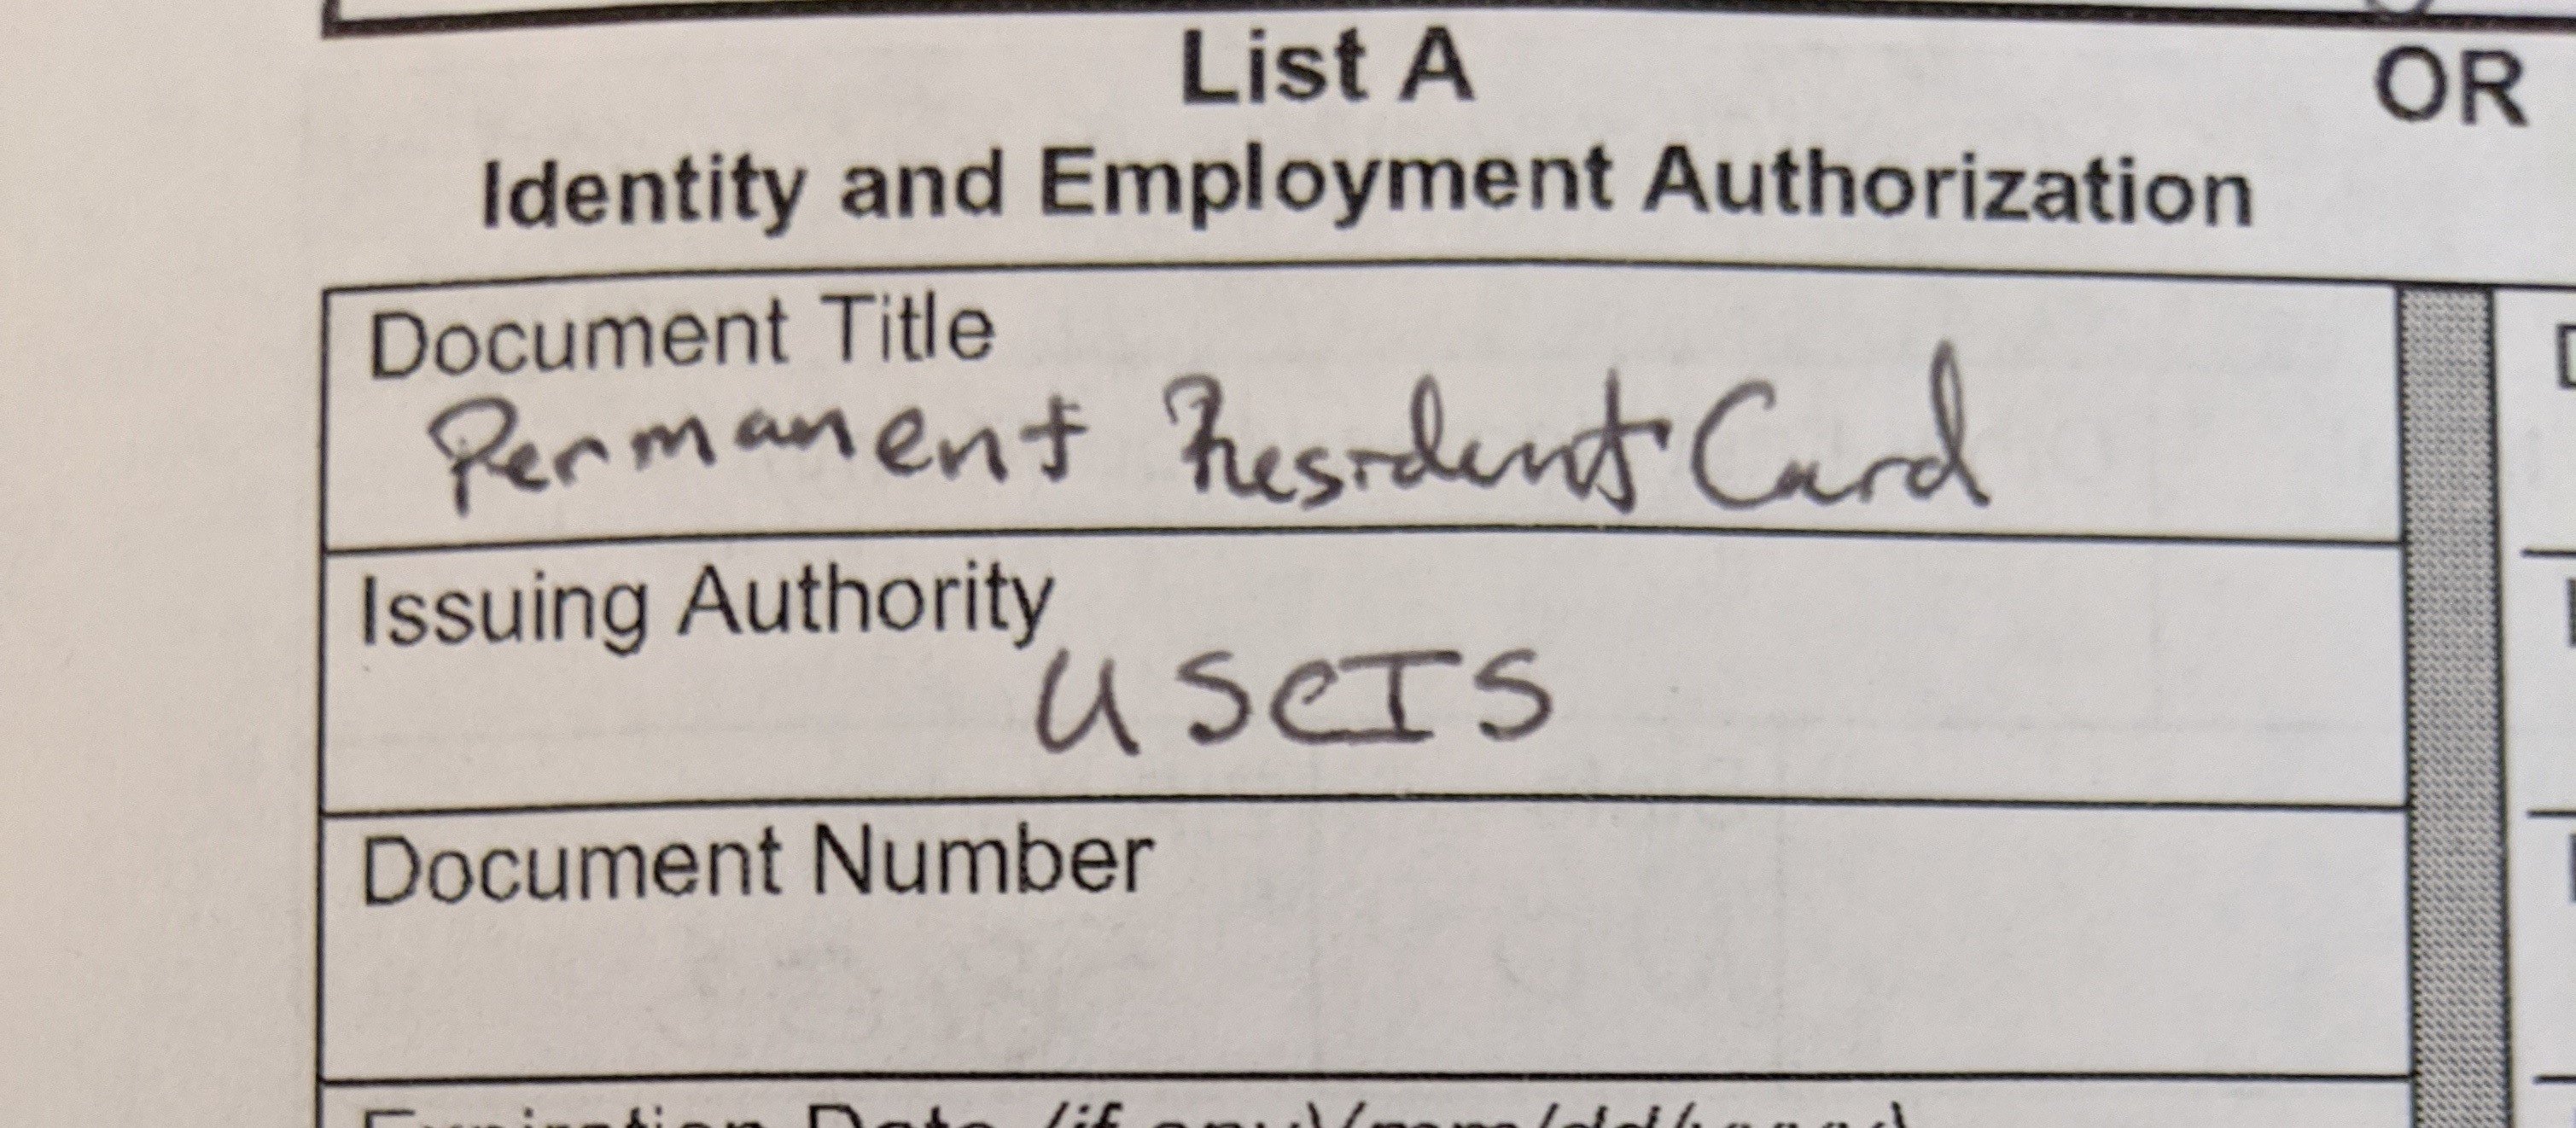 List A
OR
Identity and Employment Authorization
Document Title
Permanent Resident Card
Issuing Authority
USCIS
Document Number
Expiration Date (if any)(mm/dd/yyyy)